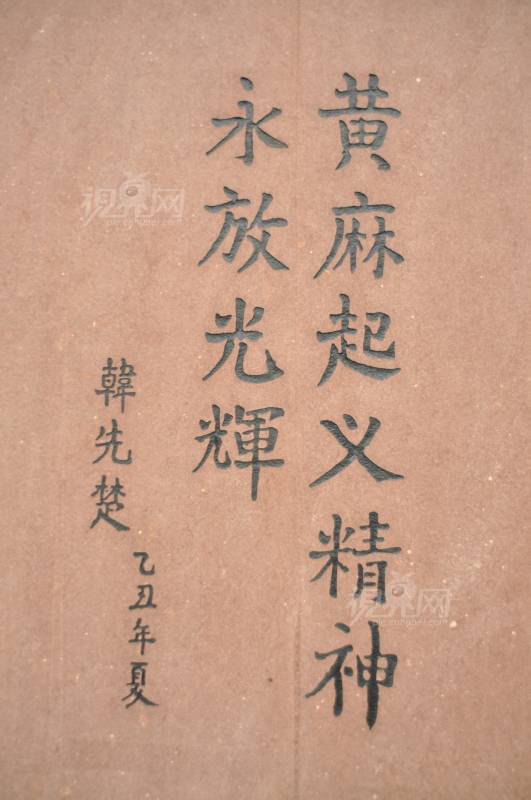 黄麻起义精神
永放光輝
韓先楚
乙丑年夏
视界网
视界网